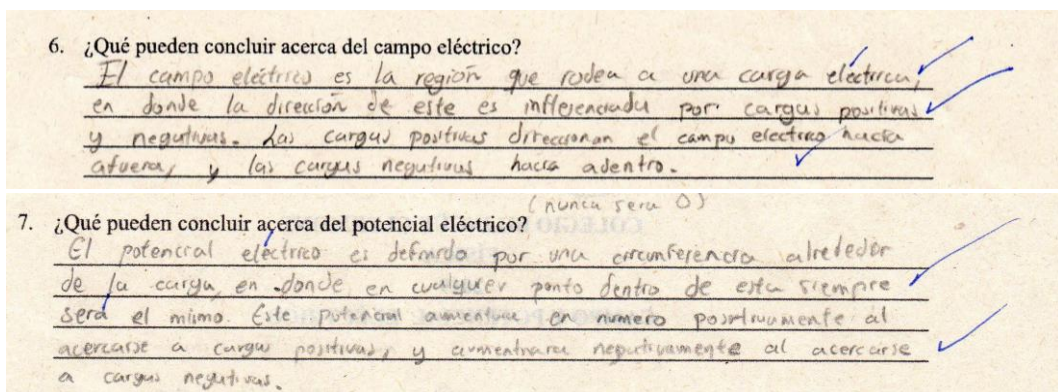 6. ¿Qué pueden concluir acerca del campo eléctrico?
El campo eléctrico es la región que rodea a una carga eléctrica,
en donde la dirección de este es influenciada por cargas positivas
y negativas. Las cargas positivas direccionan el campo electrico hacia
afuera, y las cargas negativas hacia adentro.
(nunca sera 0)
7. ¿Qué pueden concluir acerca del potencial eléctrico?
El potencial eléctrico es definido por una circunferencia alrededor
de la carga, en donde, en cualquier punto dentro de esta siempre
será el mismo. Este potencial aumentara en numero positivamente al
acercarse a cargas positivas, y aumentara negativamente al acercarse
a cargas negativas.